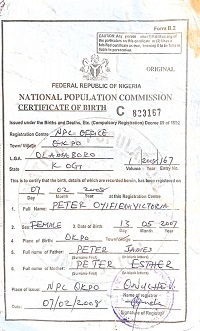 Form B.2
CAUTION: Any person who
the particulars on this certificate
falsified certificate as true, knowing it to be false is
liable to prosecution
ORIGINAL
FEDERAL REPUBLIC OF NIGERIA
NATIONAL POPULATION COMMISSION
CERTIFICATE OF BIRTH
C 823167
Issued under the Births and Deaths, Etc. (Compulsory Registration) Decree 69 of 1992
Registration Centre NPC OFFICE
Town/Village OKPO
L.G.A. OLAMABORO
State KOGI
Volume Entry No.
This is to certify that the birth, details of which are recorded herein, has been registered on
07 02 2008
Day Month Year at this Registration Centre
1. Full Name: PETER
2. Sex: FEMALE 3. Date of Birth: 13 05 2007
Day Month Year
4. Place of Birth: OKPO
Town/Village
5. Full name of Father: PETER JAMES
(Surname First) (in block letters)
6. Full name of Mother: PETER ESTHER
(Surname First) (in block letters)
Place of issue NPC OKPO
Name of registrar
Date 07/02/2008
Signature of Registrar